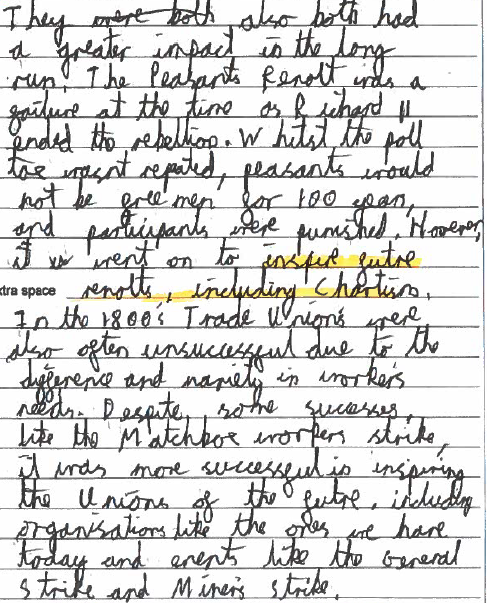 They were both also both had
a greater impact in the long
run. The Peasants Revolt was a
failure at the time as Richard II
ended the rebellion. Whilst the poll
tax wasnt repated, peasants would
not be free men for 100 years,
and participants were punished. However,
it went on to inspire futre
xtra space revolts, including Chartism.
In the 1800's Trade Unions were
also often unsuccessful due to the
difference and variety in workers
needs. Despite, some successes,
like the Matchbox workers strike,
it was more successful in inspiring
the Unions of the futre, including
organisations like the ones we have
today and events like the General
Strike and Miners Strike.